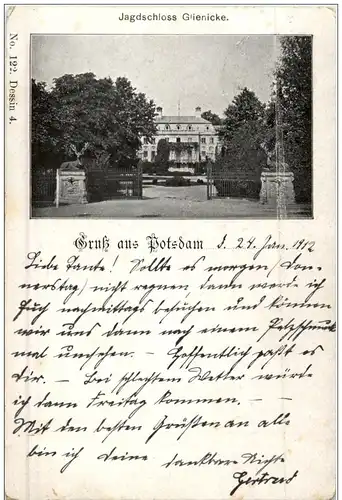 Jagdschloss Glienicke.
No. 122. Dessin 4.
Gruß aus Potsdam d. 24. Jan. 1912
Liebe Tante! Sollte es morgen (Don-
nerstag) nicht regnen dann werde ich
Euch nachmittags besuchen und können
wir uns dann nach einem Pelzschmuck
mal umsehen. — Hoffentlich paßt es
Dir. — Bei schlechtem Wetter würde
ich dann Freitag kommen. — —
Mit den besten Grüßen an alle
bin ich Deine dankbare Nichte
Gertrud